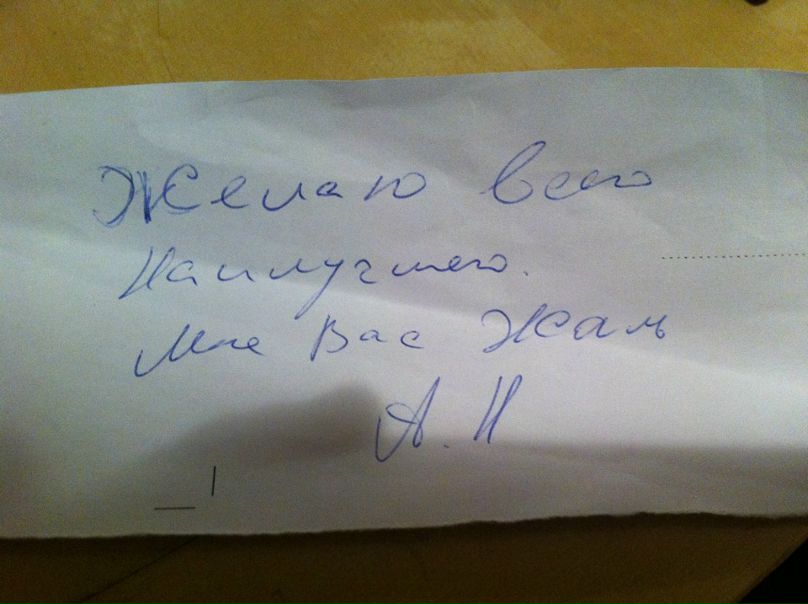 Желаю всего
Наилучшего.
Мне Вас Жаль
А. Н